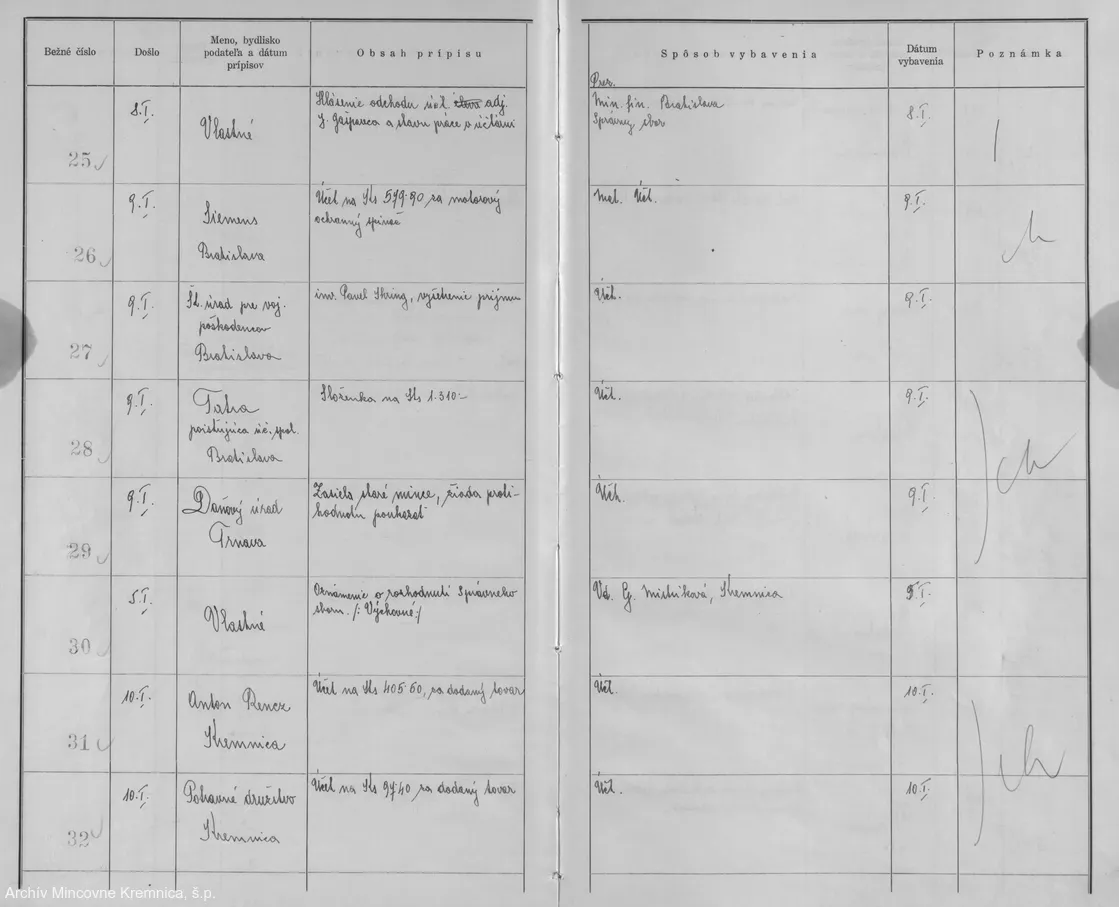 Bežné číslo
Došlo
Meno, bydlisko
podateľa a dátum
prípisov
Obsah prípisu
Spôsob vybavenia
Dátum
vybavenia
Poznámka
25
8.I.
Vlastné
Hlásenie odchodu úč. adj.
J. Gašparca a stavu práce v účtárni
Prez.
Min. fin. Bratislava
Správny sbor
8.I.
26
9.I.
Siemens
Bratislava
Účet na Ks 579·90 za motorový
ochranný spínač
Mat. Účt.
9.I.
27
9.I.
Št. úrad pre voj.
poškodencov
Bratislava
inv. Pavel vyšetrenie príjmu
Účt.
9.I.
28
9.I.
Tatra
poisťujúca úč. spol.
Bratislava
Složenka na Ks 1.310·-
Účt.
9.I.
29
9.I.
Daňový úrad
Trnava
Zasiela staré mince, žiada proti-
hodnotu poukázať
Účt.
9.I.
30
5.I.
Vlastné
Oznámenie o rozhodnutí Správneho
sboru /: Výchovné :/
Vd. G. Mistríková, Kremnica
5.I.
31
10.I.
Anton Rencz
Kremnica
Účet na Ks 405·50, za dodaný tovar
Účt.
10.I.
32
10.I.
Potravné družstvo
Kremnica
Účet na Ks 97·40 za dodaný tovar
Účt.
10.I.
Archív Mincovne Kremnica, š.p.